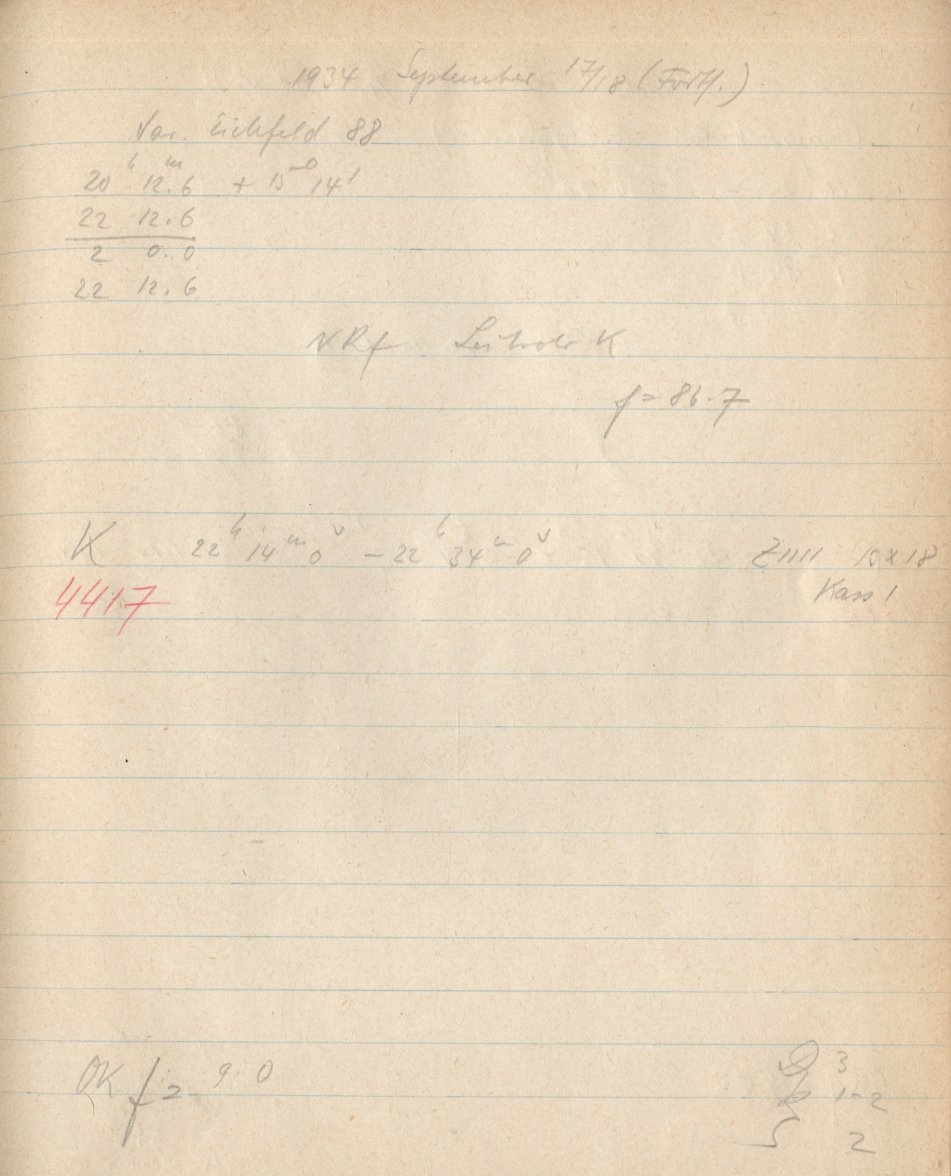 1934 September 17/18 (Forts.)
Var. Eichfeld 88
20ʰ 12.ᵐ6 + 15° 14'
22 12.6
2 0.0
22 12.6
f = 86.7
K 22ʰ 14ᵐ 0ˢ – 22ʰ 34ᵐ 0ˢ 13 x 18
4417 Kass 1
f = 9.0 3
1-2
2